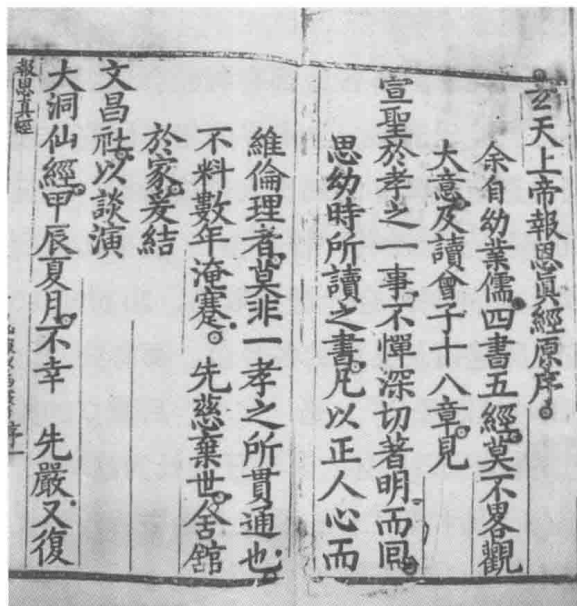 玄天上帝報恩眞經原序。
余自幼業儒。四書五經。莫不畧觀
大意。及讀曾子十八章。見
宣聖於孝之一事。不憚深切著明。而囘。
思幼時所讀之書。凡以正人心而
維倫理者。莫非一孝之所貫通也。
不料數年淹蹇。 先慈棄世。舍舘
於家。爰結
文昌社。以談演
大洞仙經。甲辰夏月。不幸 先嚴又復
報恩真經
序一